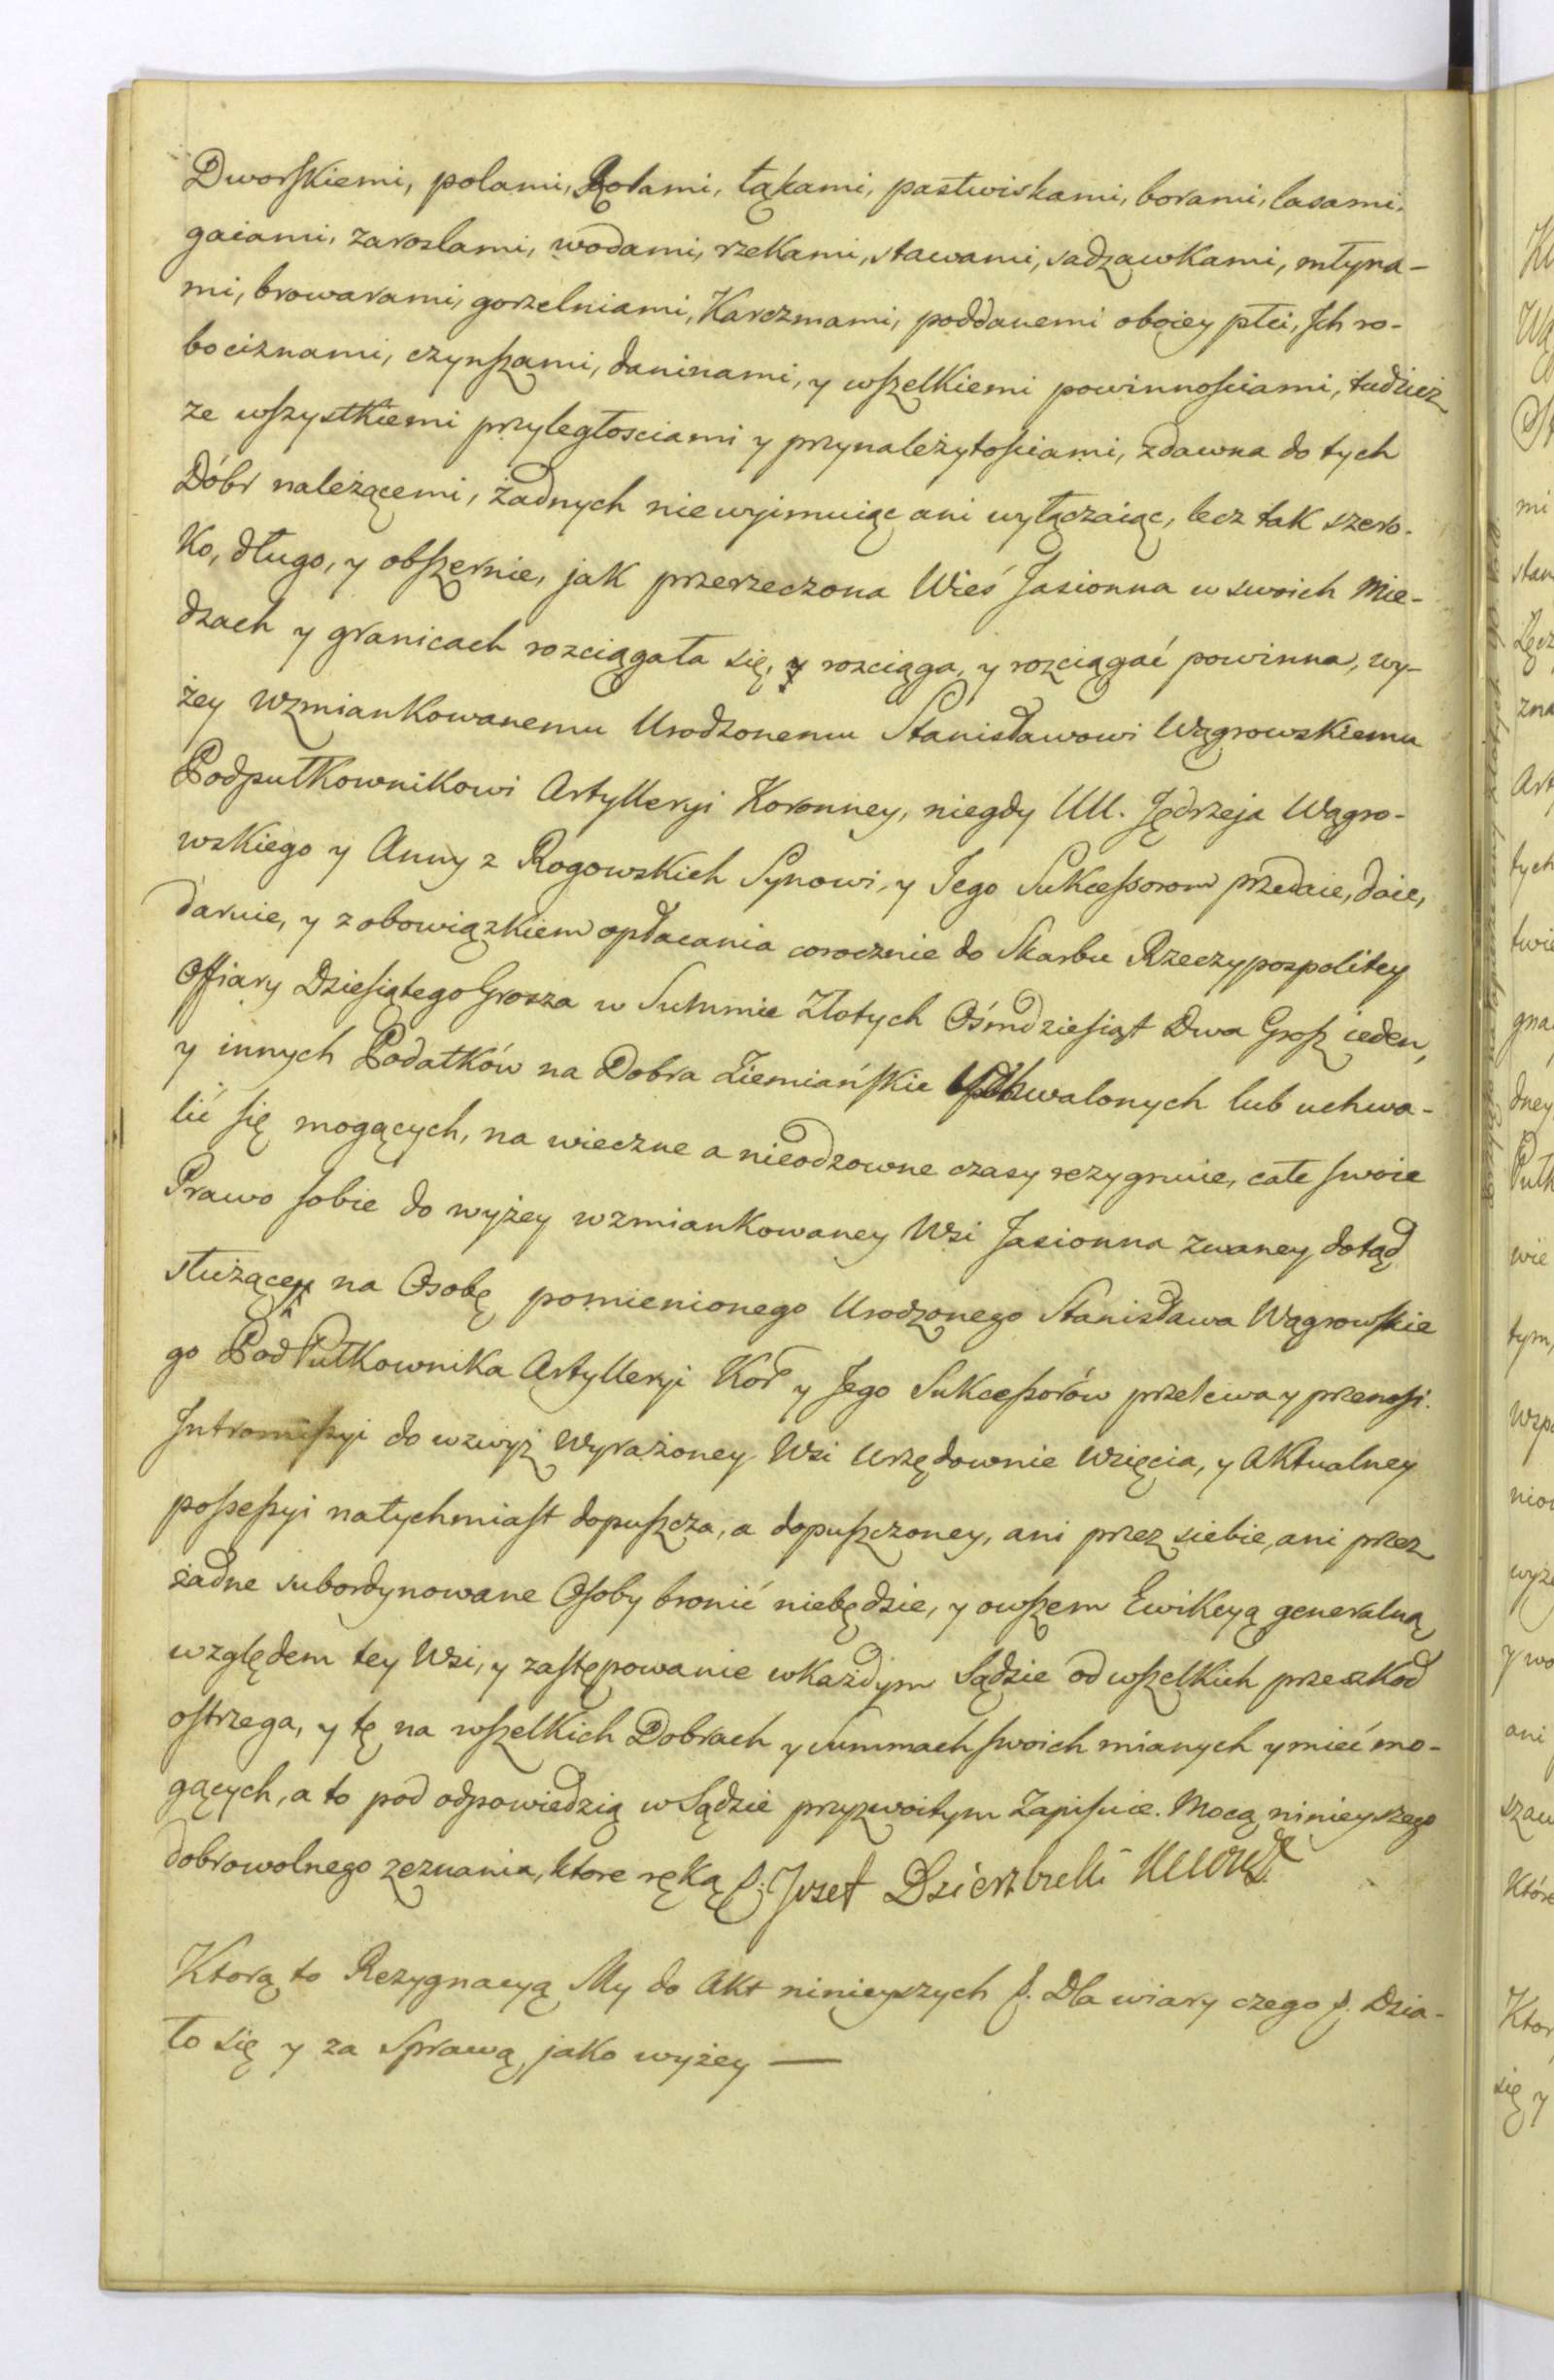 Dworskiemi, polami, Rolami, łąkami, pastwiskami, borami, lasami,
gaiami, zaroslami, wodami, rzekami, stawami, sadzawkami, młyna-
mi, browarami, gorzelniami, Karczmami, poddanemi oboiey płci, Jch ro-
bociznami, czynszami, daninami, y wszelkiemi powinnościami, tudzież
ze wszystkiemi przyległosciami y przynależytościami, zdawna do tych
Dóbr należącemi, żadnych niewyimuiąc ani wyłączaiąc, lecz tak szero-
ko, długo, y obszernie, jak przerzeczona Wieś Jasionna w swoich Mie-
dzach y granicach rozciągała się, y rozciąga, y rozciągać powinna, wy-
żey wzmiankowanemu Urodzonemu Stanisławowi Wągrowskiemu
Podpułkownikowi Artylleryi Koronney, niegdy UU. Jędrzeja Wągro-
wskiego y Anny z Rogowskich Synowi, y Jego Sukcessorom przedaie, daie,
daruie, y z obowiązkiem opłacania corocznie do Skarbu Rzeczypospolitey
Offiary Dziesiątego Grosza w Summie Złotych Ośmdziesiąt Dwa Grosz ieden,
y innych Podatków na Dobra Ziemiańskie uchwalonych lub uchwa-
lić się mogących, na wieczne a nieodzowne czasy rezygnuie, całe swoie
Prawo sobie do wyżey wzmiankowaney Wsi Jasionna zwaney dotąd
służące na Osobę pomienionego Urodzonego Stanisława Wągrowskie
go PodPułkownika Artylleryi Kor y Jego Sukcessorów przelewa y przenosi.
Jntromissyi do wzwyż wyrażoney Wsi Urzędownie wzięcia, y Aktualney
possessyi natychmiast dopuszcza, a dopuszczoney, ani przez siebie, ani przez
żadne subordynowane Osoby bronić niebędzie, y owszem Ewikcyą generalną
względem tey Wsi, y zastępowanie w każdym Sądzie od wszelkich przeszkod
ostrzega, y tę na wszelkich Dobrach y summach swoich mianych y mieć mo-
gących, a to pod odpowiedzią w Sądzie przyzwoitym Zapisuie. Mocą ninieyszego
dobrowolnego zeznania, ktore ręką p. Jozef Dzierzbicki
Ktorą to Rezygnacyą My do Akt ninieyszych p. Dla wiary czego p. Dzia-
ło się y za Sprawą, jako wyżey —